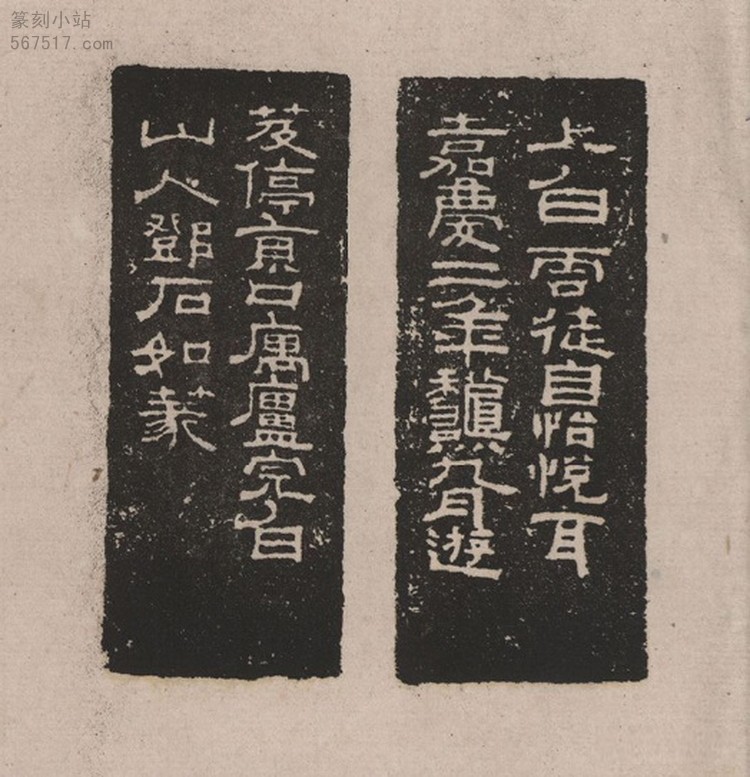 篆刻小站
567517.com
上白雲徒自怡悅耳
嘉慶二年龝九月遊
茇停貢口寓廬完白
山人鄧石如篆